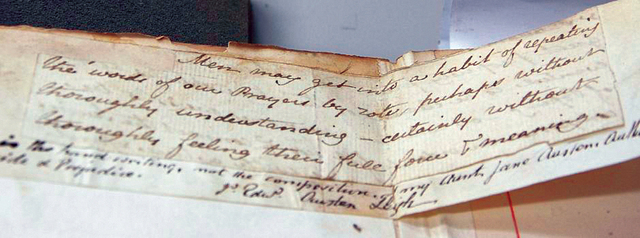 Men may get into a habit of repeating
the words of our Prayers by rote, perhaps without
thoroughly understanding – certainly without
thoroughly feeling their full force & meaning.
is the hand writing, not the composition, my Aunt, Jane Austen, Auth
ide & Prejudice.
Js. Edwd. Austen Leigh